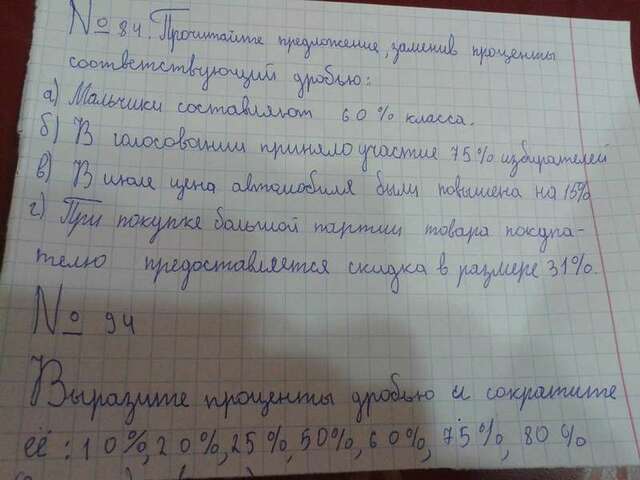 № 84. Прочитайте предложение, заменив проценты
соответствующий дробью:
а) Мальчики составляют 60% класса.
б) В голосовании приняло участие 75% избирателей
в) В июле цена автомобиля были повышена на 15%
г) При покупке большой партии товара покупа-
телю предоставляется скидка в размере 31%.
№ 94
Выразите проценты дробью и сократите
её: 10%, 20%, 25%, 50%, 60%, 75%, 80%